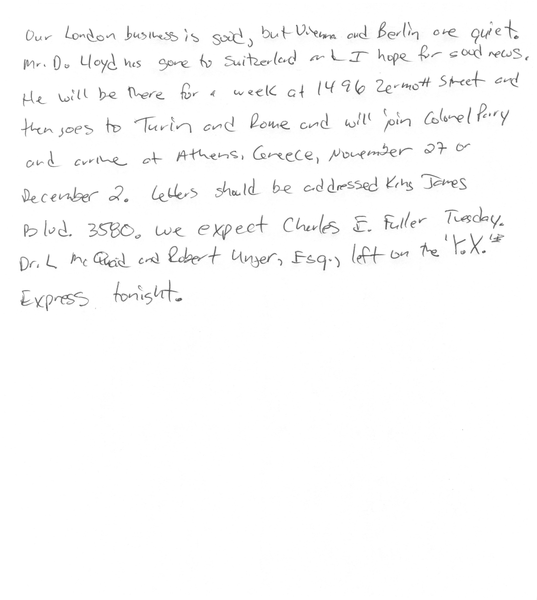 Our London business is good, but Vienna and Berlin are quiet.
Mr. D. Lloyd has gone to Suitzerland and I hope for good news.
He will be there for a week at 1496 Zermott Street and
then goes to Turin and Rome and will join Colonel Parry
and arrive at Athens, Greece, November 27 or
December 2. Letters should be addressed King James
Blvd. 3580. We expect Charles E. Fuller Tuesday.
Dr. L Mc Quaid and Robert Unger, Esq., left on the "Y.X."
Express tonight.